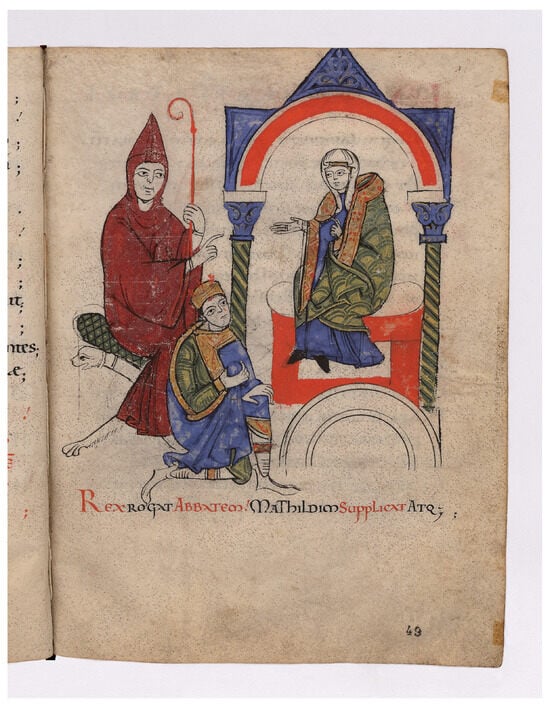 ntes;
Rex rogat Abbatem! Mathildim Supplicat Atq; ;
49